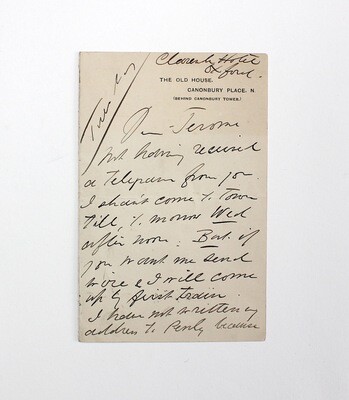 Clarendon Hotel
Oxford.
THE OLD HOUSE,
CANONBURY PLACE, N.
(BEHIND CANONBURY TOWER.)
Tuesday
Dear Jerome
Not having received
a telegram from you
I shan't come to Town
till to morrow Wed
afternoon. But if
you want me send
wire & I will come
up by first train.
I have not written
address to because